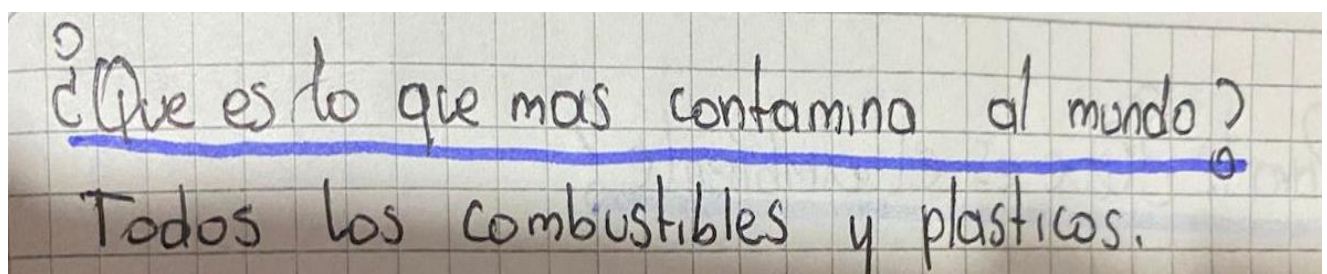 ¿Que es lo que mas contamina al mundo?
Todos los combustibles y plasticos.